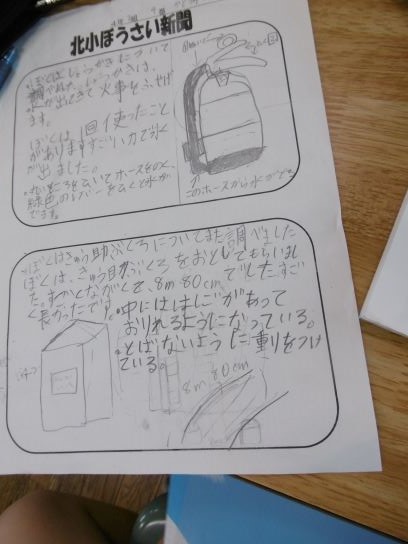 北小ぼうさい新聞
ぼくはしょうかきについて
調べました。しょうかきは、
が出てきて火事をふせげ
ます。
ぼくは、1回使ったこと
がありますすごい力で水
が出ました。
・丸いところをぬいてホースをのく、
緑色のレバーをひくと水が
でます。
このホースから水がでる
・ぼくはきゅう助ぶくろについてまた調べました
ぼくは、きゅう助ぶくろをおとしてもらいまし
た。すごくながくて、8m80cmでしたすご
く長かったです。
・中にははしごがあって
おりれるようになっている。
・とばないように重りをつけ
ている。
8m80cm